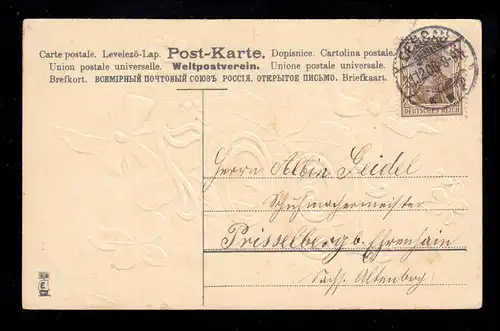 Carte postale. Levelező-Lap. Post-Karte. Dopisnice. Cartolina postale.
Union postale universelle. Weltpostverein. Unione postale universale.
Brefkort. ВСЕМІРНЫЙ ПОЧТОВЫЙ СОЮЗЪ РОССІЯ. ОТКРЫТОЕ ПИСЬМО. Briefkaart.
DEUTSCHES REICH
Herrn Albin Seidel
Schuhmachermeister
Prisselberg b. Ehrenhain
Sachs. Altenberg